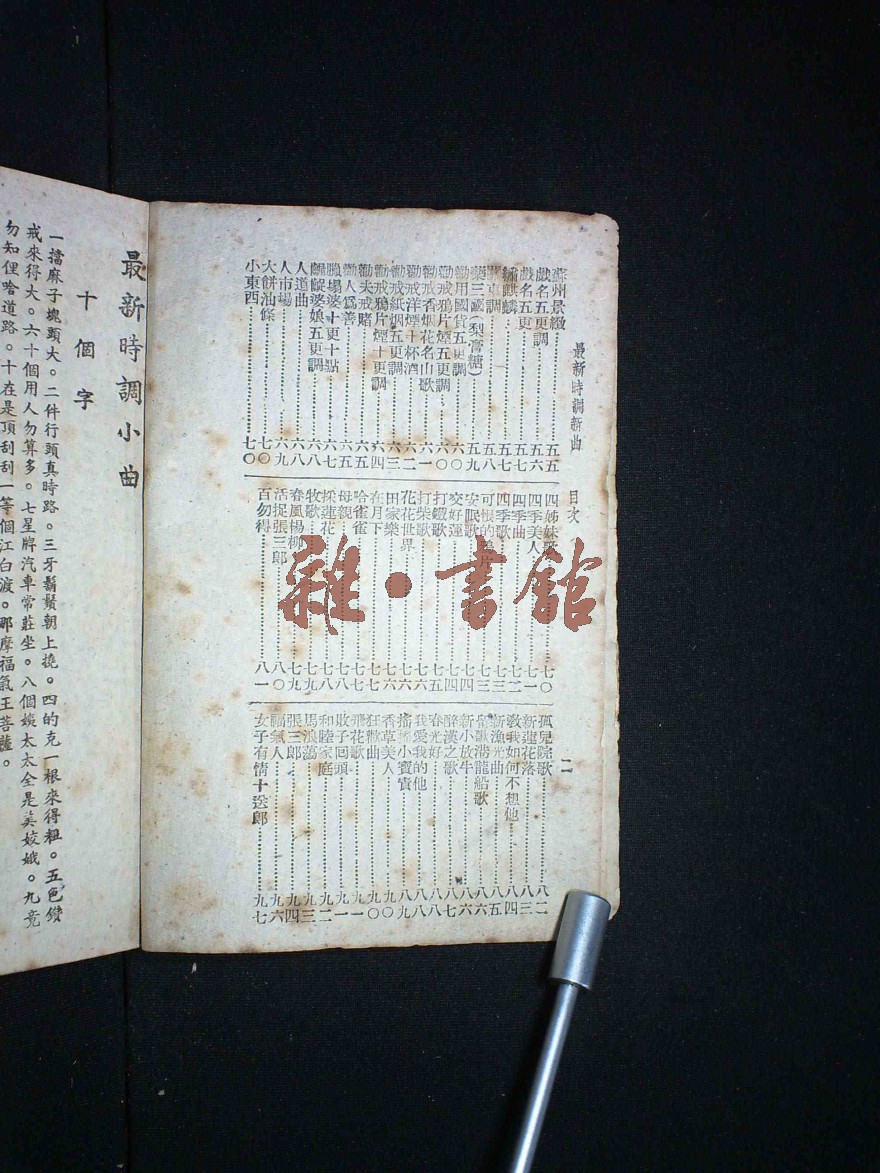 最新時調新曲
目次
二
蘇州景緻 五五
戲名五更調 五六
戲名五更 五七
繡麒麟 五七
東調 五八
藥三國(梨膏糖) 五九
勸用國貨五更調 六〇
勸戒鴉片煙五更調 六〇
勸戒香烟花名山歌 六一
勸戒洋煙十杯酒 六二
勸戒紙烟五更調 六三
勸戒鴉片煙十更調 六四
勸夫戒賭 六五
勸人爲善 六五
鹹塌婆十更十點 六七
婆娘五更調 六八
人道曲 六八
人市場 六九
大餅油條 七〇
小東西 七〇
四姊妹歌 七〇
四季美人 七一
四季曲 七二
四季歌 七三
可恨的鴉片 七三
安眠歌 七四
交好運 七四
打鐵歌 七五
打柴歌 七六
花花世界 七六
田家樂 七六
在月下 七七
哈雀雀 七七
母親 七八
採蓮花 七八
牧歌 七九
春風楊柳 七九
活捉張三郎 八〇
百勿得 八一
孤兒院歌 八二
新蓮花落 八三
教我如何不想他 八四
新漁光曲 八五
龍船歌 八六
新小放牛 八六
醉漢之歌 八七
春光好 八八
我愛我的他 八八
搖搖小寶寶 八九
香草美人 九〇
狂歡曲 九〇
飛花歌 九一
敗子回頭 九一
和睦家庭 九二
馬浪蕩 九三
張三郎 九四
福氣人 九六
女子有情十送郎 九七
最新時調小曲
十個字
一擋麻子塊頭大。二件行頭真時路。三牙鬍鬚朝上撓。四的克一根來得粗。五色鑽
戒來得大。六十個用人勿算多。七星牌汽車常莊坐。八個姨太太全是美姣娥。九竟
勿知俚啥道路。十在是頂刮刮一等個江白渡。那摩福氣王菩薩。
雜·書館